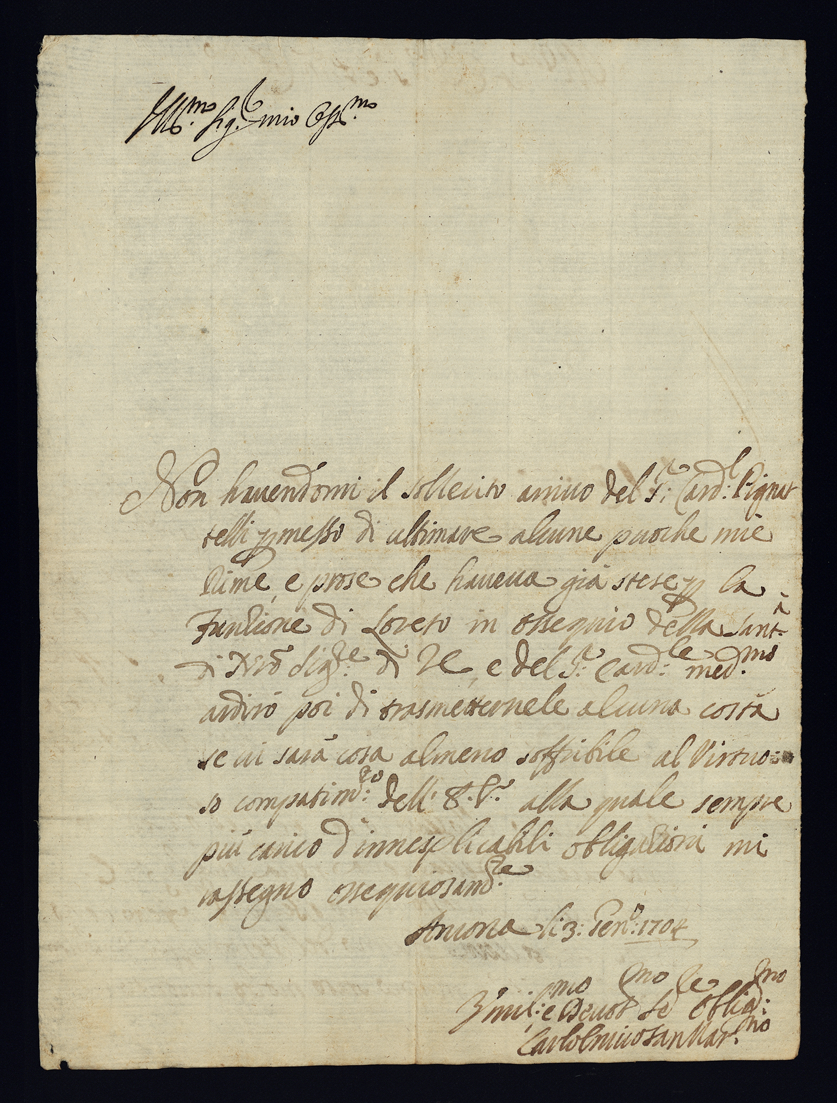 Ill.mo Sig.re mio Oss.mo
Non havendomi il sollecito arrivo del S.r Card.l Pignat
telli pmesso di ultimare alcune puoche mie
Rime, e prose che haveva già stese p la
Funzione di Loreto in ossequio della Sant.à
di Nrõ Sig.re di VE, e del S.r Card.le med.mo
ardirò poi di trasmetternele alcuna costà
se vi sarà cosa almeno soffribile al Virtuo:
so compatim.to dell' S.V. alla quale sempre
più carico d'innesplicabili obligazioni mi
rassegno ossequiosam.te
Ancona li 3: Gen.o: 1704
e Devot.mo Se.re Oblig.mo